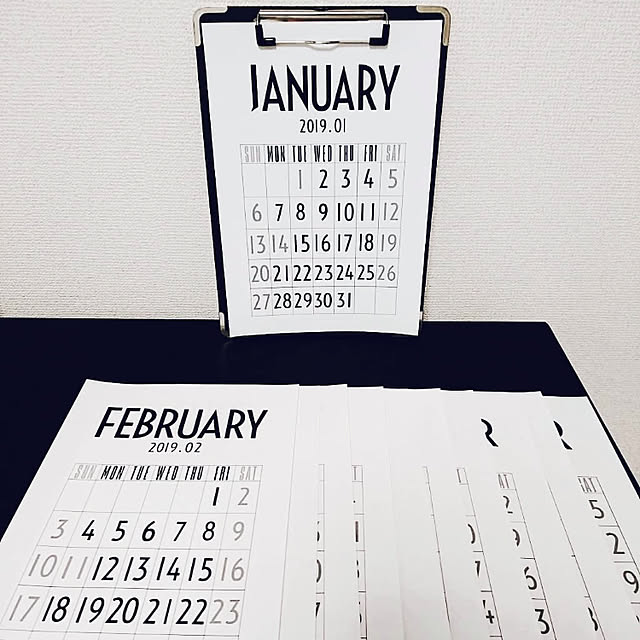 JANUARY
2019.01
SUN MON TUE WED THU FRI SAT
1 2 3 4 5
6 7 8 9 10 11 12
13 14 15 16 17 18 19
20 21 22 23 24 25 26
27 28 29 30 31
FEBRUARY
2019.02
SUN MON TUE WED THU FRI SAT
1 2
3 4 5 6 7 8 9
10 11 12 13 14 15 16
17 18 19 20 21 22 23